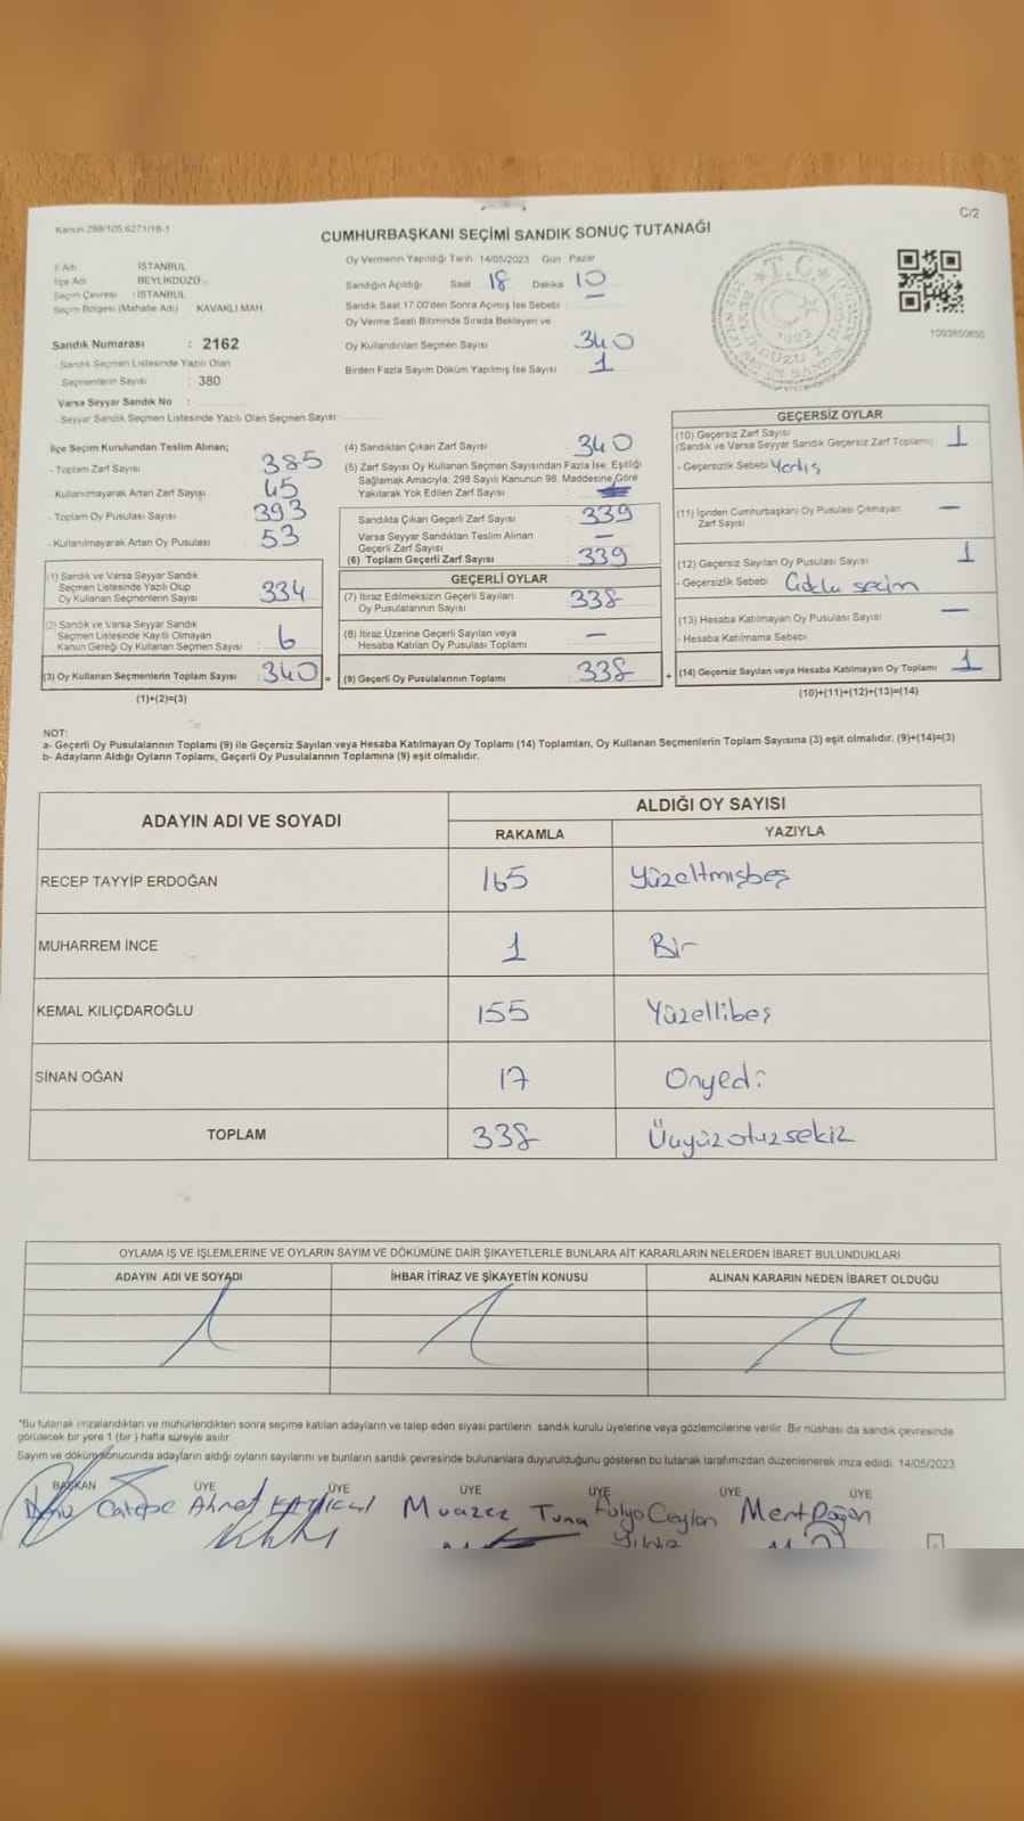 C/2
Kanun 298/105,6271/18-1
CUMHURBAŞKANI SEÇİMİ SANDIK SONUÇ TUTANAĞI
İl Adı : İSTANBUL
İlçe Adı BEYLİKDÜZÜ
Seçim Çevresi : İSTANBUL
Seçim Bölgesi (Mahalle Adı) KAVAKLI MAH.
Sandık Numarası : 2162
Sandık Seçmen Listesinde Yazılı Olan
Seçmenlerin Sayısı : 380
Varsa Seyyar Sandık No :
Seyyar Sandık Seçmen Listesinde Yazılı Olan Seçmen Sayısı
Oy Vermenin Yapıldığı Tarih 14/05/2023 Gün Pazar
Sandığın Açıldığı Saat 18 Dakika 10
Sandık Saat 17.00'den Sonra Açılmış İse Sebebi —
Oy Verme Saati Bitiminde Sırada Bekleyen ve
Oy Kullandırılan Seçmen Sayısı 340
Birden Fazla Sayım Döküm Yapılmış İse Sayısı 1
T.C.
1093850650
İlçe Seçim Kurulundan Teslim Alınan;
- Toplam Zarf Sayısı 385
- Kullanılmayarak Artan Zarf Sayısı 45
- Toplam Oy Pusulası Sayısı 393
- Kullanılmayarak Artan Oy Pusulası 53
(1) Sandık ve Varsa Seyyar Sandık
Seçmen Listesinde Yazılı Olup
Oy Kullanan Seçmenlerin Sayısı 334
(2) Sandık ve Varsa Seyyar Sandık
Seçmen Listesinde Kayıtlı Olmayan
Kanun Gereği Oy Kullanan Seçmen Sayısı 6
(3) Oy Kullanan Seçmenlerin Toplam Sayısı 340 =
(1)+(2)=(3)
(4) Sandıktan Çıkan Zarf Sayısı 340
(5) Zarf Sayısı Oy Kullanan Seçmen Sayısından Fazla İse; Eşitliği
Sağlamak Amacıyla, 298 Sayılı Kanunun 98. Maddesine Göre
Yakılarak Yok Edilen Zarf Sayısı
Sandıkta Çıkan Geçerli Zarf Sayısı 339
Varsa Seyyar Sandıktan Teslim Alınan
Geçerli Zarf Sayısı —
(6) Toplam Geçerli Zarf Sayısı 339
GEÇERLİ OYLAR
(7) İtiraz Edilmeksizin Geçerli Sayılan
Oy Pusulalarının Sayısı 338
(8) İtiraz Üzerine Geçerli Sayılan veya
Hesaba Katılan Oy Pusulası Toplamı —
(9) Geçerli Oy Pusulalarının Toplamı 338 +
GEÇERSİZ OYLAR
(10) Geçersiz Zarf Sayısı
(Sandık ve Varsa Seyyar Sandık Geçersiz Zarf Toplamı) 1
- Geçersizlik Sebebi
(11) İçinden Cumhurbaşkanı Oy Pusulası Çıkmayan
Zarf Sayısı —
(12) Geçersiz Sayılan Oy Pusulası Sayısı 1
- Geçersizlik Sebebi seçim
(13) Hesaba Katılmayan Oy Pusulası Sayısı —
- Hesaba Katılmama Sebebi
(14) Geçersiz Sayılan veya Hesaba Katılmayan Oy Toplamı 1
(10)+(11)+(12)+(13)=(14)
NOT:
a- Geçerli Oy Pusulalarının Toplamı (9) ile Geçersiz Sayılan veya Hesaba Katılmayan Oy Toplamı (14) Toplamları, Oy Kullanan Seçmenlerin Toplam Sayısına (3) eşit olmalıdır. (9)+(14)=(3)
b- Adayların Aldığı Oyların Toplamı, Geçerli Oy Pusulalarının Toplamına (9) eşit olmalıdır.
ADAYIN ADI VE SOYADI
ALDIĞI OY SAYISI
RAKAMLA YAZIYLA
RECEP TAYYİP ERDOĞAN 165 Yüzaltmışbeş
MUHARREM İNCE 1 Bir
KEMAL KILIÇDAROĞLU 155 Yüzellibeş
SİNAN OĞAN 17 Onyedi
TOPLAM 338 Üçyüzotuzsekiz
OYLAMA İŞ VE İŞLEMLERİNE VE OYLARIN SAYIM VE DÖKÜMÜNE DAİR ŞİKAYETLERLE BUNLARA AİT KARARLARIN NELERDEN İBARET BULUNDUKLARI
ADAYIN ADI VE SOYADI İHBAR İTİRAZ VE ŞİKAYETİN KONUSU ALINAN KARARIN NEDEN İBARET OLDUĞU
*Bu tutanak imzalandıktan ve mühürlendikten sonra seçime katılan adayların ve talep eden siyasi partilerin sandık kurulu üyelerine veya gözlemcilerine verilir. Bir nüshası da sandık çevresinde
görülecek bir yere 1 (bir) hafta süreyle asılır.
Sayım ve döküm sonucunda adayların aldığı oyların sayılarını ve bunların sandık çevresinde bulunanlara duyurulduğunu gösteren bu tutanak tarafımızdan düzenlenerek imza edildi. 14/05/2023
BAŞKAN ÜYE ÜYE ÜYE ÜYE ÜYE ÜYE
Ahmet Muazez Tuna Fulya Ceylan Mert Doğan